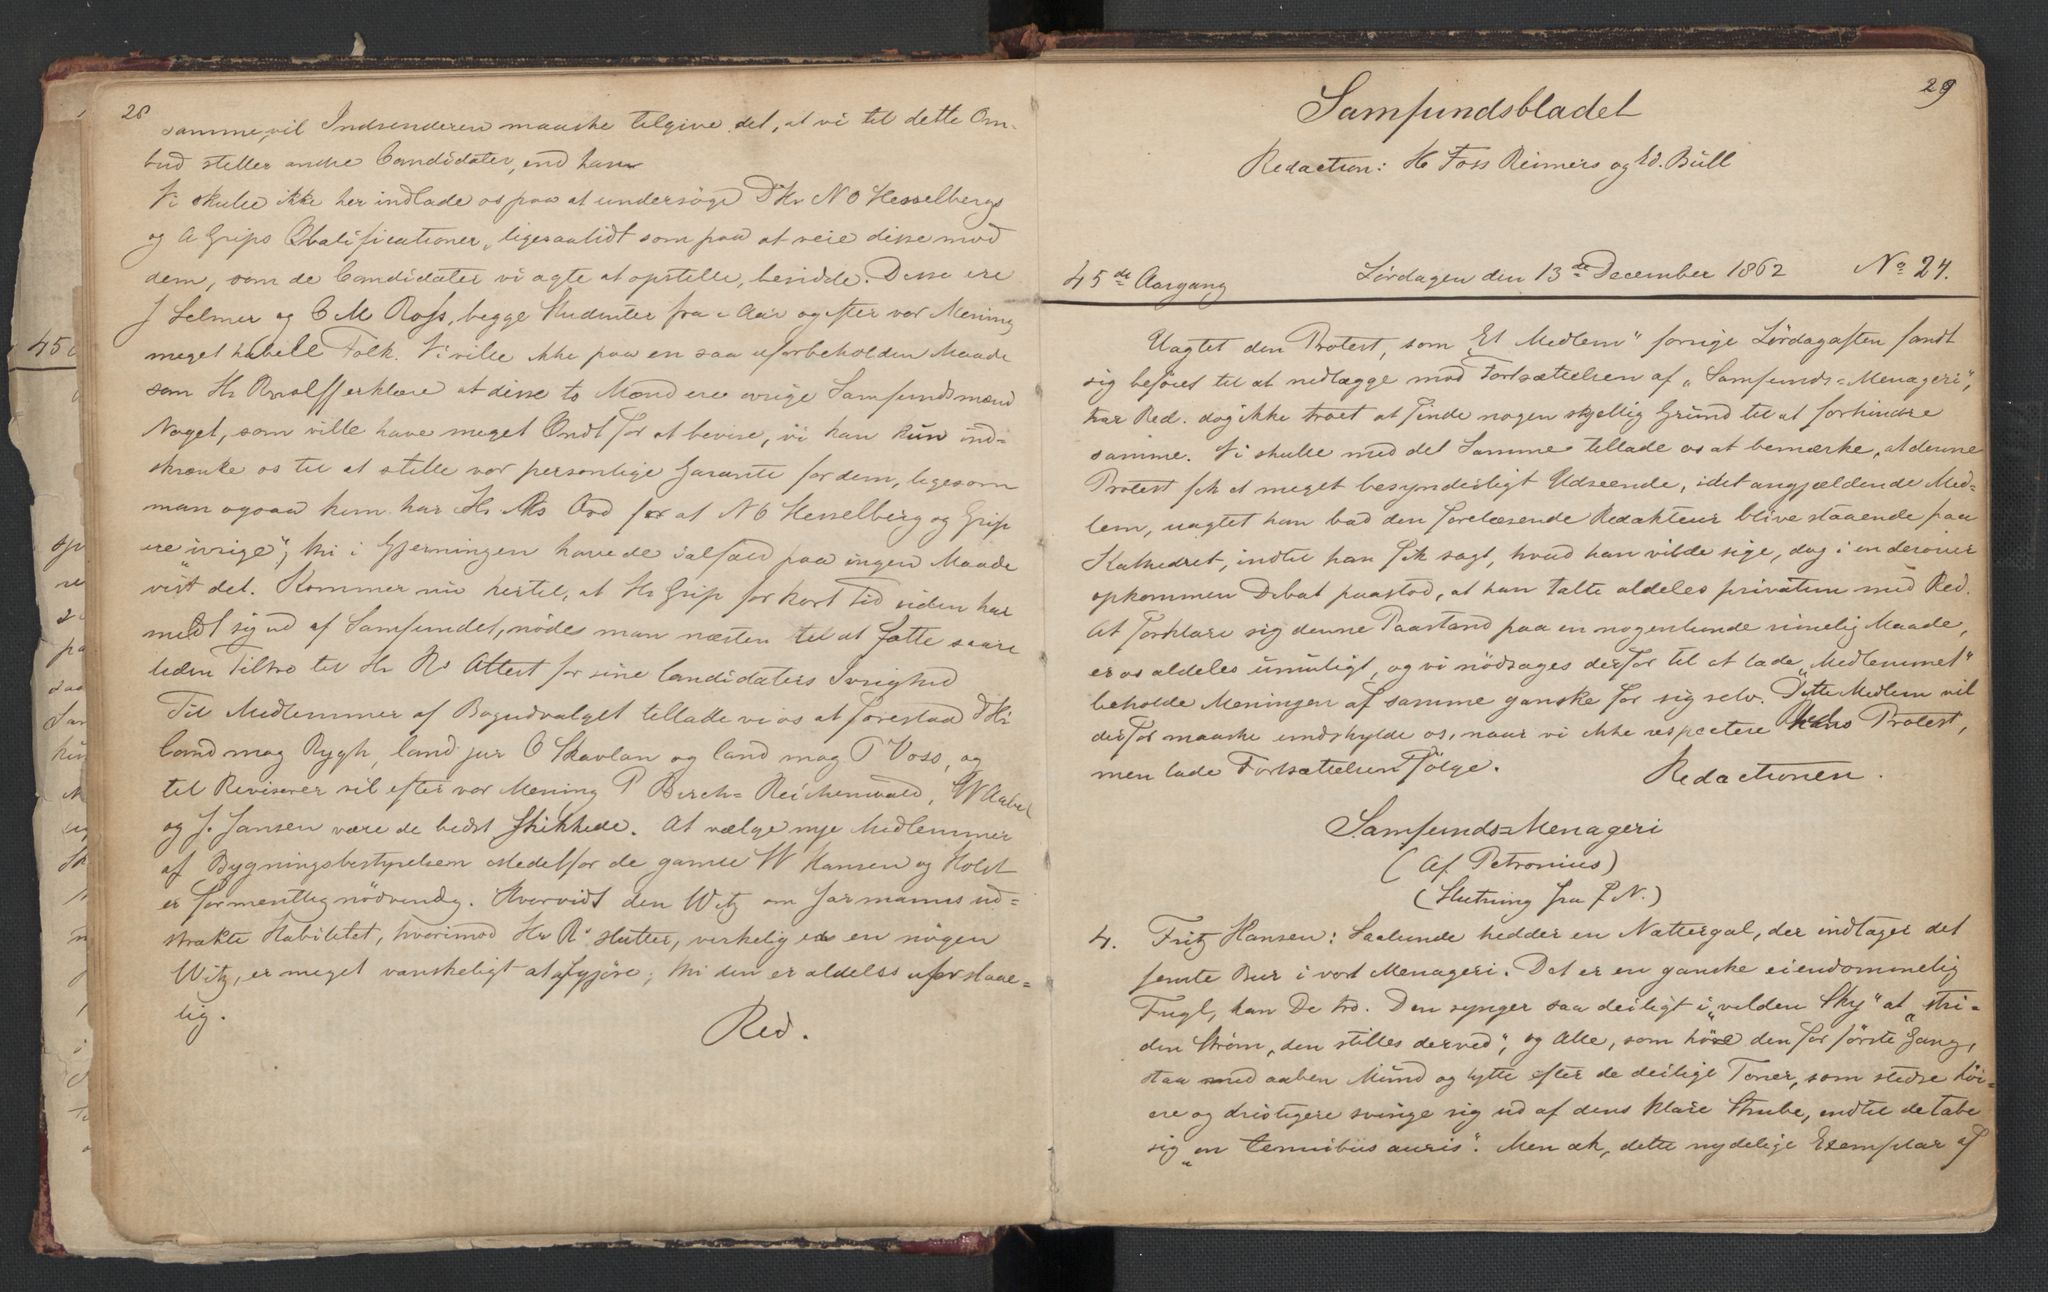 28
samme, vil Indsenderen maaske tilgive det, at vi til dette Om-
bud stiller andre Candidater, end han
Vi skulle ikke her indlade os paa at undersöge DHr N O Hesselbergs
og A Grips Qvalificationer, ligesaalidt som paa at veie disse mod
dem, som de Candidater vi agte at opstille, besidde. Disse ere
J Selmer og C M Ross, begge Studenter fra i Aar og efter vor Mening
meget habile Folk. Vi ville ikke paa en saa uforbeholden Maade
som Hr Rxxx erklære at disse to Mænd ere ivrige Samfundsmænd
Noget, som ville have meget Ondt for at bevise, vi kan kun ind-
skrænke os til at stille vor personlige Garanti for dem, ligesom
man ogsaa kun har Hr Rs Ord for at N O Hesselberg og Grip
ere "ivrige"; thi i Gjerningen have de ialfald paa ingen Maade
vist det. Kommer nu hertil, at Hr Grip for kort Tid siden har
meldt sig ud af Samfundet, nödes man næsten til at fatte saare
liden Tiltro til Hr Rs Attest for sine Candidaters Ivrighed
Til Medlemmer af Bogudvalget tillade vi os at foreslaa DHr
Cand mag Rygh, Cand jur O Skavlan og Cand mag P Voss, og
til Revisorer vil efter vor Mening P Birch-Reichenwald, W Aubel
og J. Jansen være de bedst skikkede. At vælge nye Medlemmer
af Bygningsbestyrelsen istedetfor de gamle W Hansen og Holst
er formentlig nödvendig. Hvorvidt den Witz om Jarmanns ud-
strakte Habilitet, hvorimod Hr R slutter, virkelig er en nogen
Witz, er meget vanskeligt at afgjöre; thi den er aldeles uforstaae-
lig.
Red.
29
Samfundsbladet
Redaction: H Foss Reimers og Ed. Bull
45de Aargang Lørdagen den 13de December 1862 No 24.
Uagtet den Protest, som "Et Medlem" forrige Lördagaften fandt
sig beföiet til at nedlægge mod Fortsættelsen af "Samfunds-Menageri",
har Red. dog ikke troet at finde nogen skjellig Grund til at forhindre
samme. Vi skulle med det Samme tillade os at bemærke, at denne
Protest fik et meget besynderligt Udseende, idet angjældende Med-
lem, uagtet han bad den forelæsende Redakteur blive staaende paa
Kathedret, indtil han fik sagt, hvad han vilde sige, dog i en derover
opkommen Debat paastod, at han talte aldeles privatim med Red.
At forklare sig denne Paastand paa en nogenlunde rimelig Maade,
er os aldeles umuligt, og vi nödsages derfor til at lade "Medlemmet"
beholde Meningen af samme ganske for sig selv. Dette Medlem vil
derfor maaske undskylde os, naar vi ikke respectere hans Protest,
men lade Fortsættelsen fölge. Redactionen.
Samfunds-Menageri
(Af Petronius)
(Slutning fra f. N.)
4. Fritz Hansen: Saalunde hedder en Nattergal, der indtager det
femte Bur i vort Menageri. Det er en ganske eiendommelig
Fugl, kan De tro. Den synger saa deiligt i "vilden Sky" at "stri-
den Strøm, den stilles derved", og Alle, som höre den for förste Gang,
staa med aaben Mund og lytte efter de deilige Toner, som stedse höi-
ere og dristigere svinge sig ud af dens klare Strube, indtil de tabe
sig "en tennibus auris". Men ak, dette nydelige Exemplar af